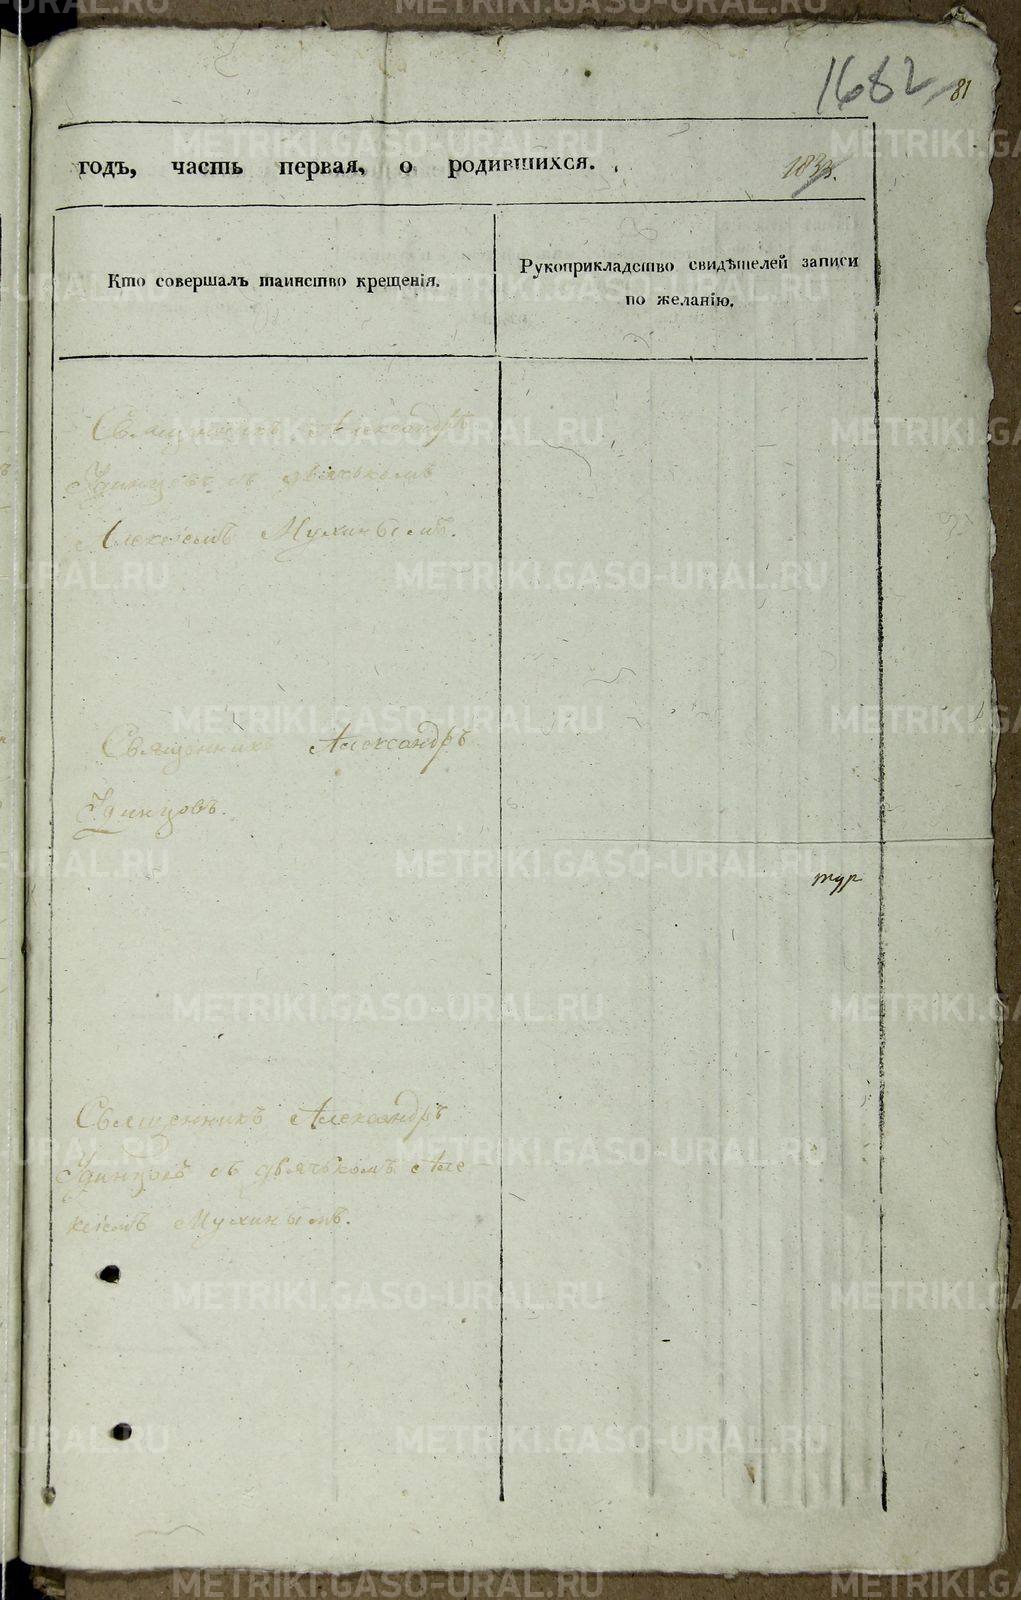 1682
81
годъ, часть первая, о родившихся.
Кто совершалъ таинство крещенія.
Рукоприкладство свидѣтелей записи
по желанію.
Священникъ Александръ
Удинцовъ съ дьячькомъ
Алексіемъ Мухинымъ.
Священникъ Александръ
Удинцовъ.
Священникъ Александръ
Удинцовъ съ дьячькомъ Але
ксіемъ Мухинымъ.
METRIKI.GASO-URAL.RU